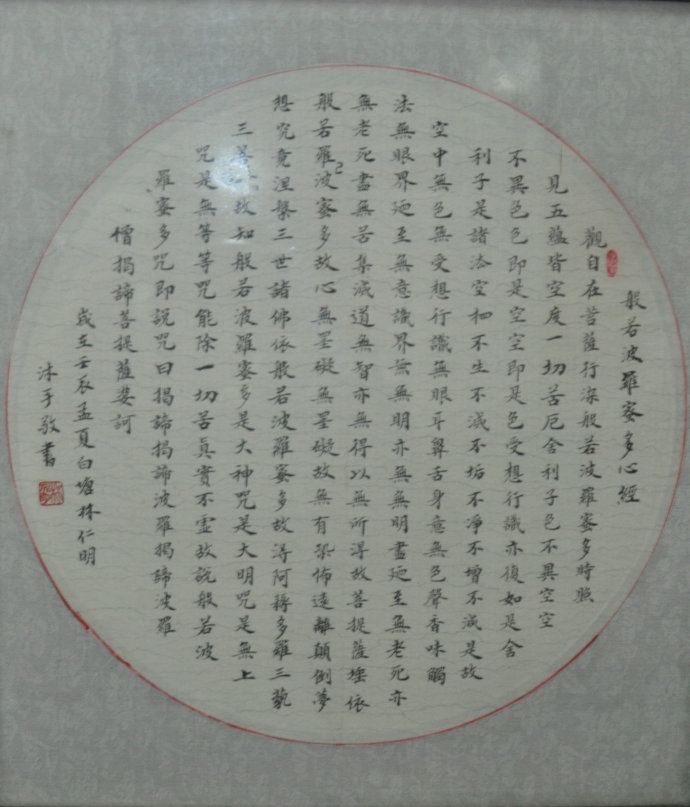 般若波羅蜜多心經
觀自在菩薩行深般若波羅蜜多時照
見五蘊皆空度一切苦厄舍利子色不異空空
不異色色即是空空即是色受想行識亦復如是舍
利子是諸法空相不生不滅不垢不淨不增不減是故
空中無色無受想行識無眼耳鼻舌身意無色聲香味觸
法無眼界廼至無意識界無無明亦無無明盡廼至無老死亦
無老死盡無苦集滅道無智亦無得以無所得故菩提薩埵依
般若羅波蜜多故心無罣礙無罣礙故無有恐怖遠離顛倒夢
想究竟涅槃三世諸佛依般若波羅蜜多故得阿耨多羅三藐
三菩故知般若波羅蜜多是大神咒是大明咒是無上
咒是無等等咒能除一切苦眞實不虛故說般若波
羅蜜多咒即說咒曰揭諦揭諦波羅揭諦波羅
僧揭諦菩提薩婆訶
歲在壬辰孟夏白塘林仁明
沐手敬書